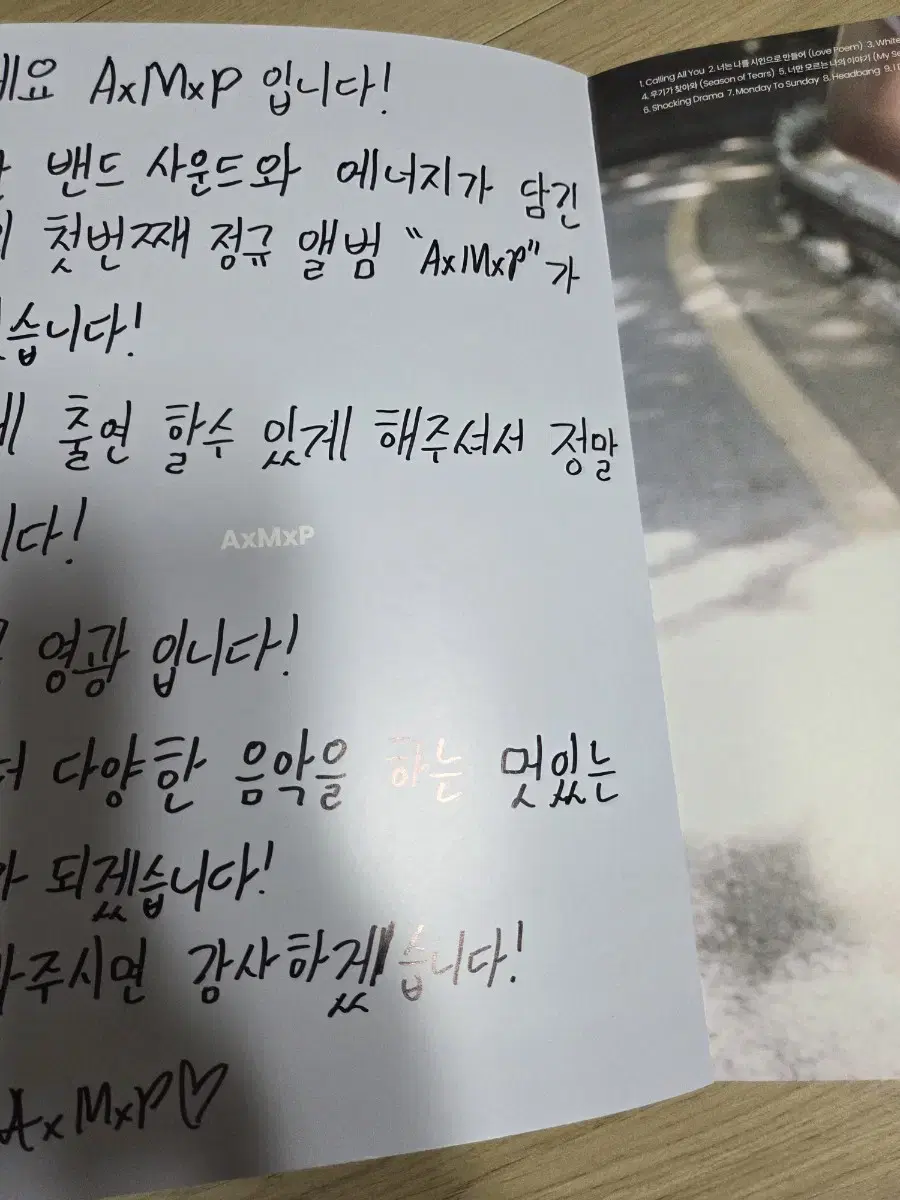 세요 AxMxP 입니다!
밴드 사운드와 에너지가 담긴
첫번째 정규 앨범 “AxMxP”가
습니다!
출연 할수 있게 해주셔서 정말
니다!
AxMxP
영광 입니다!
다양한 음악을 하는 멋있는
되겠습니다!
주시면 감사하겠습니다!
AxMxP♡
1. Calling All You 2. 너는 나를 시인으로 만들어 (Love Poem) 3. White
4. 우기가 찾아와 (Season of Tears) 5. 너만 모르는 나의 이야기 (My Se
6. Shocking Drama 7. Monday To Sunday 8. Headbang 9. I